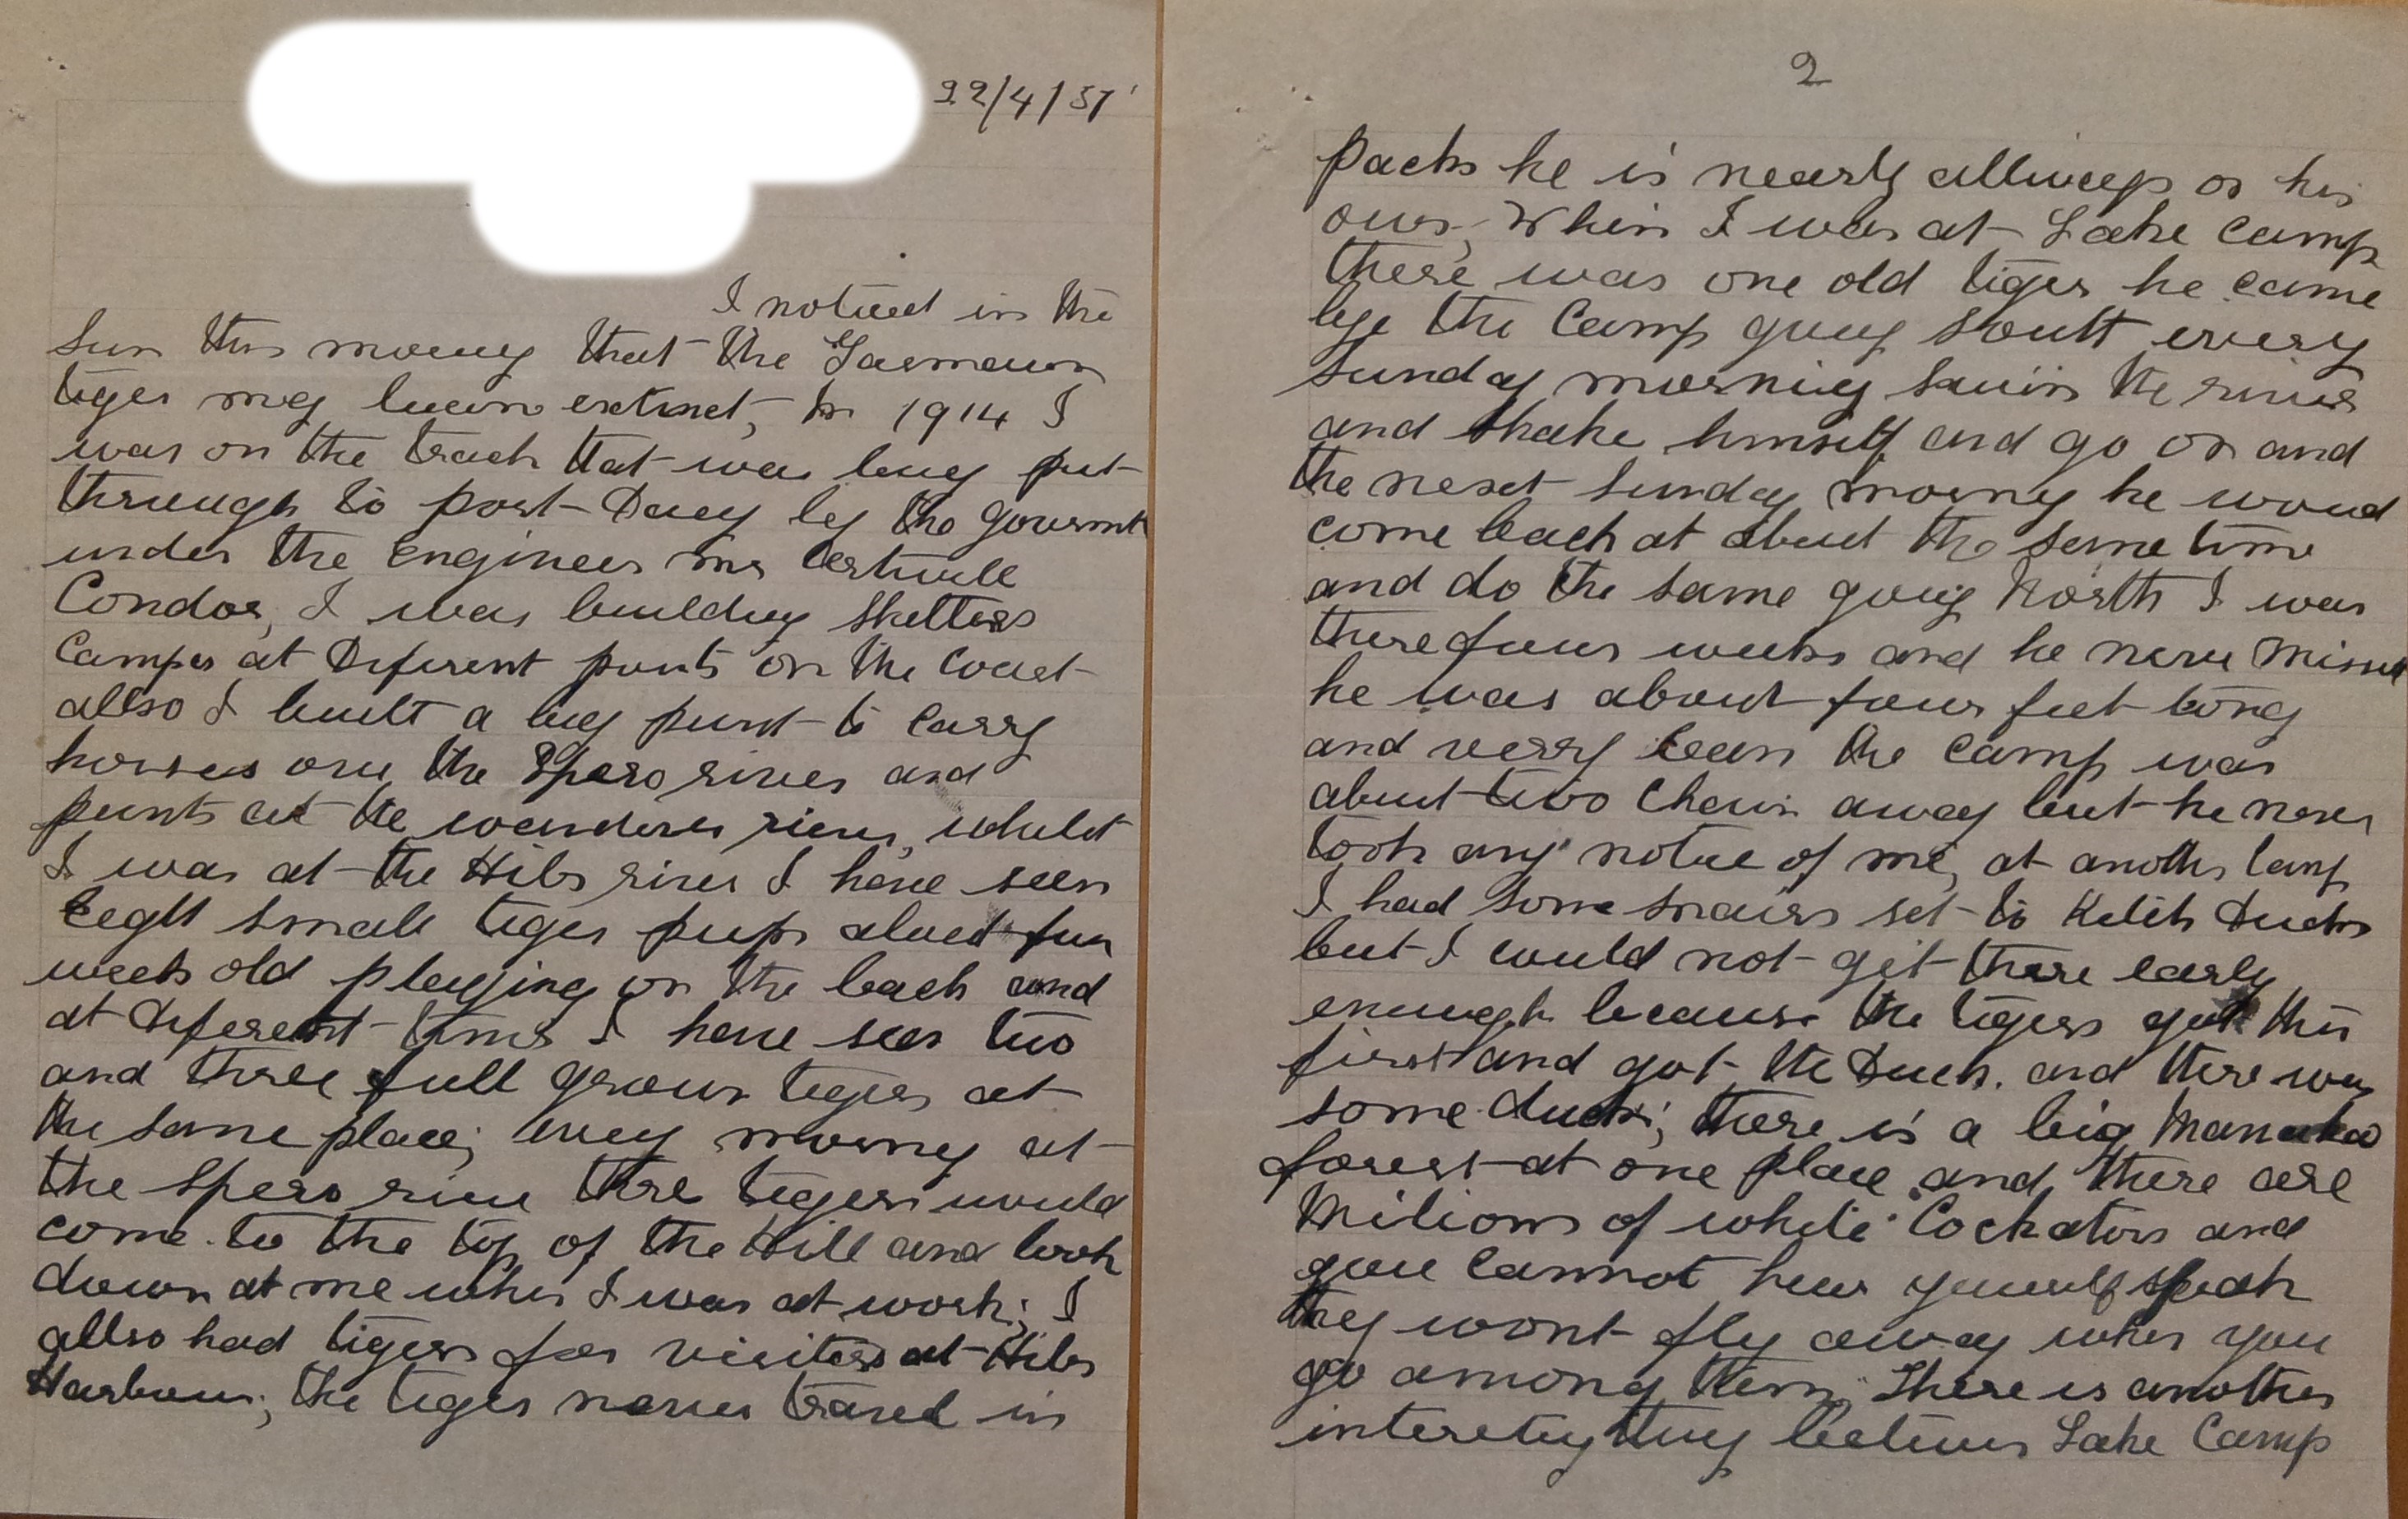 22/4/37
I noticed in the
Sun this morng that the Tasmanian
tiger may been extinct, In 1914 I
was on the track that was being put
through to port Davey by the Goverment
under the Engineer mr
Condor, I was building shelters
Camps at Diferent points on the Coast
allso I built a big punt to carry
horses over the Spero river and
punts at the wanderer river, whilst
I was at the Hibs river I have seen
Eeght small tiger pups about four
weeks old playing on the beach and
at diferent times I have seen two
and three full grown tigers at
the same place; every morng at
the Spero river three tigers would
come to the top of the Hill and look
down at me when I was at work; I
allso had tigers for visiters at Hibs
Harbour; the tiger never traved in
2
packs he is nearly allways on his
own; When I was at Lake Camp
there was one old tiger he came
bye the Camp going South every
Sunday morning swim the river
and shake himself and go on and
the next Sunday morng he woud
come back at about the same time
and do the same going North I was
there four weeks and he never missed
he was about four feet long
and verry lean the camp was
about two Chain away but he never
took any notice of me, at another Camp
I had some snairs set to Ketch Ducks
but I would not git there early
enough because the tigers got thir
first and got the Duck. and there was
some ducks; there is a big Manuka
forest at one place and there are
Milions of white Cockators and
you cannot hear yourself speak
they wont fly away when you
go among them, There is another
interesting thing between Lake Camp